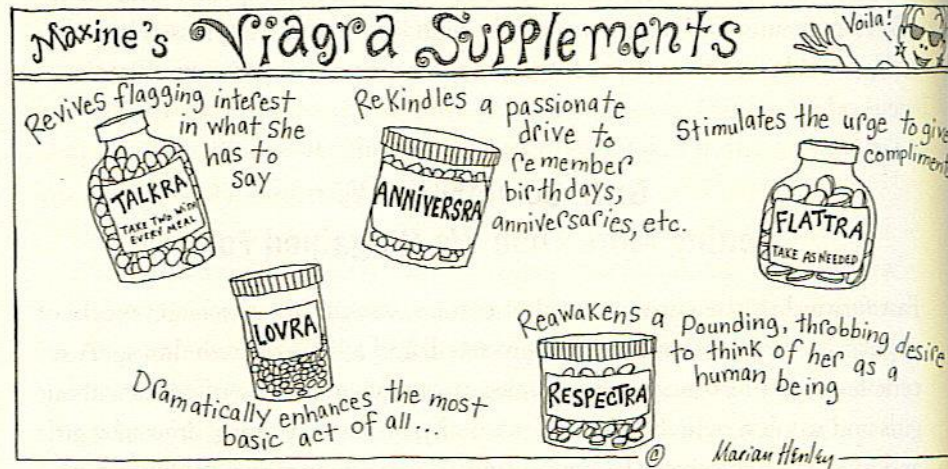 Maxine's Viagra Supplements
Voila!
Revives flagging interest
in what she
has to
say
TALKRA
TAKE TWO WITH
EVERY MEAL
Rekindles a passionate
drive to
remember
birthdays,
anniversaries, etc.
ANNIVERSRA
Stimulates the urge to give
compliments
FLATTRA
TAKE AS NEEDED
LOVRA
Dramatically enhances the most
basic act of all...
Reawakens a pounding, throbbing desire
to think of her as a
human being
RESPECTRA
©
Marian Henley